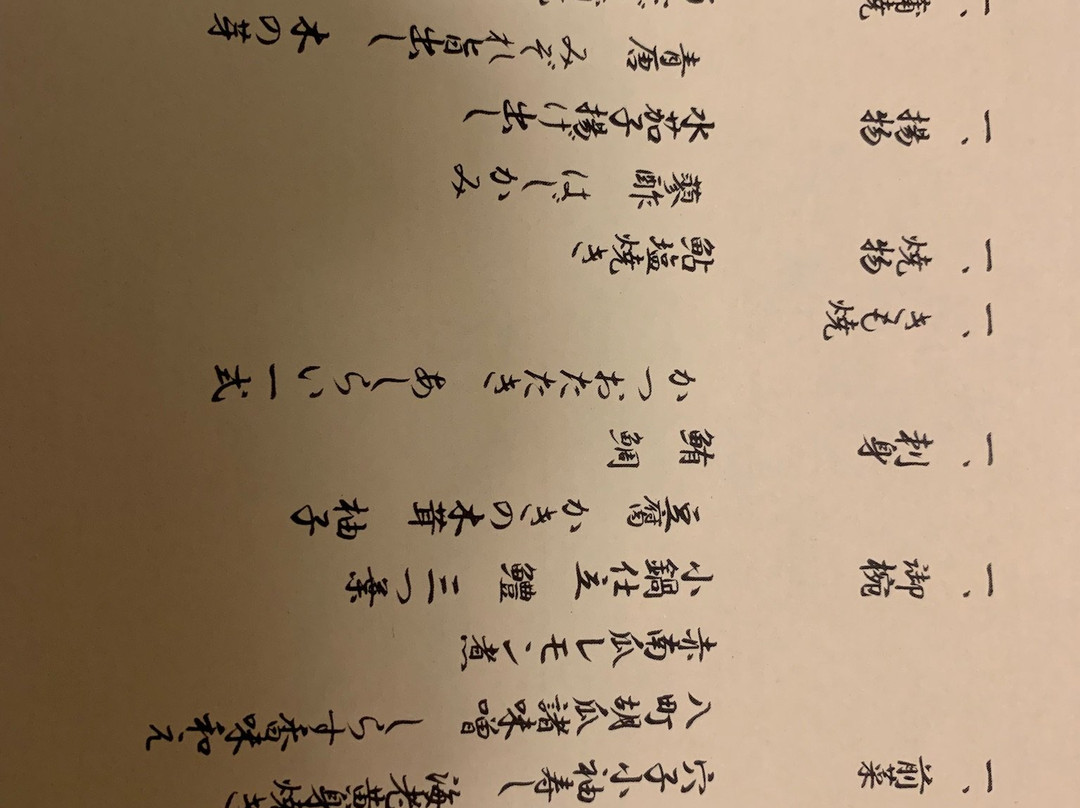 一、前菜 穴子小袖寿し 海老黄身焼き
八町胡瓜諸味噌 しらす香味和え
赤南瓜レモン煮
一、御椀 小鍋仕立 鱧 三つ葉
豆腐 かきの木茸 柚子
一、刺身 鮪 鯛
かつおたたき あしらい一式
一、きも焼
一、焼物 鮎塩焼き
蓼酢 はじかみ
一、揚物 水茄子揚げ出し
青唐 みぞれ旨出し 木の芽
一、蒲焼